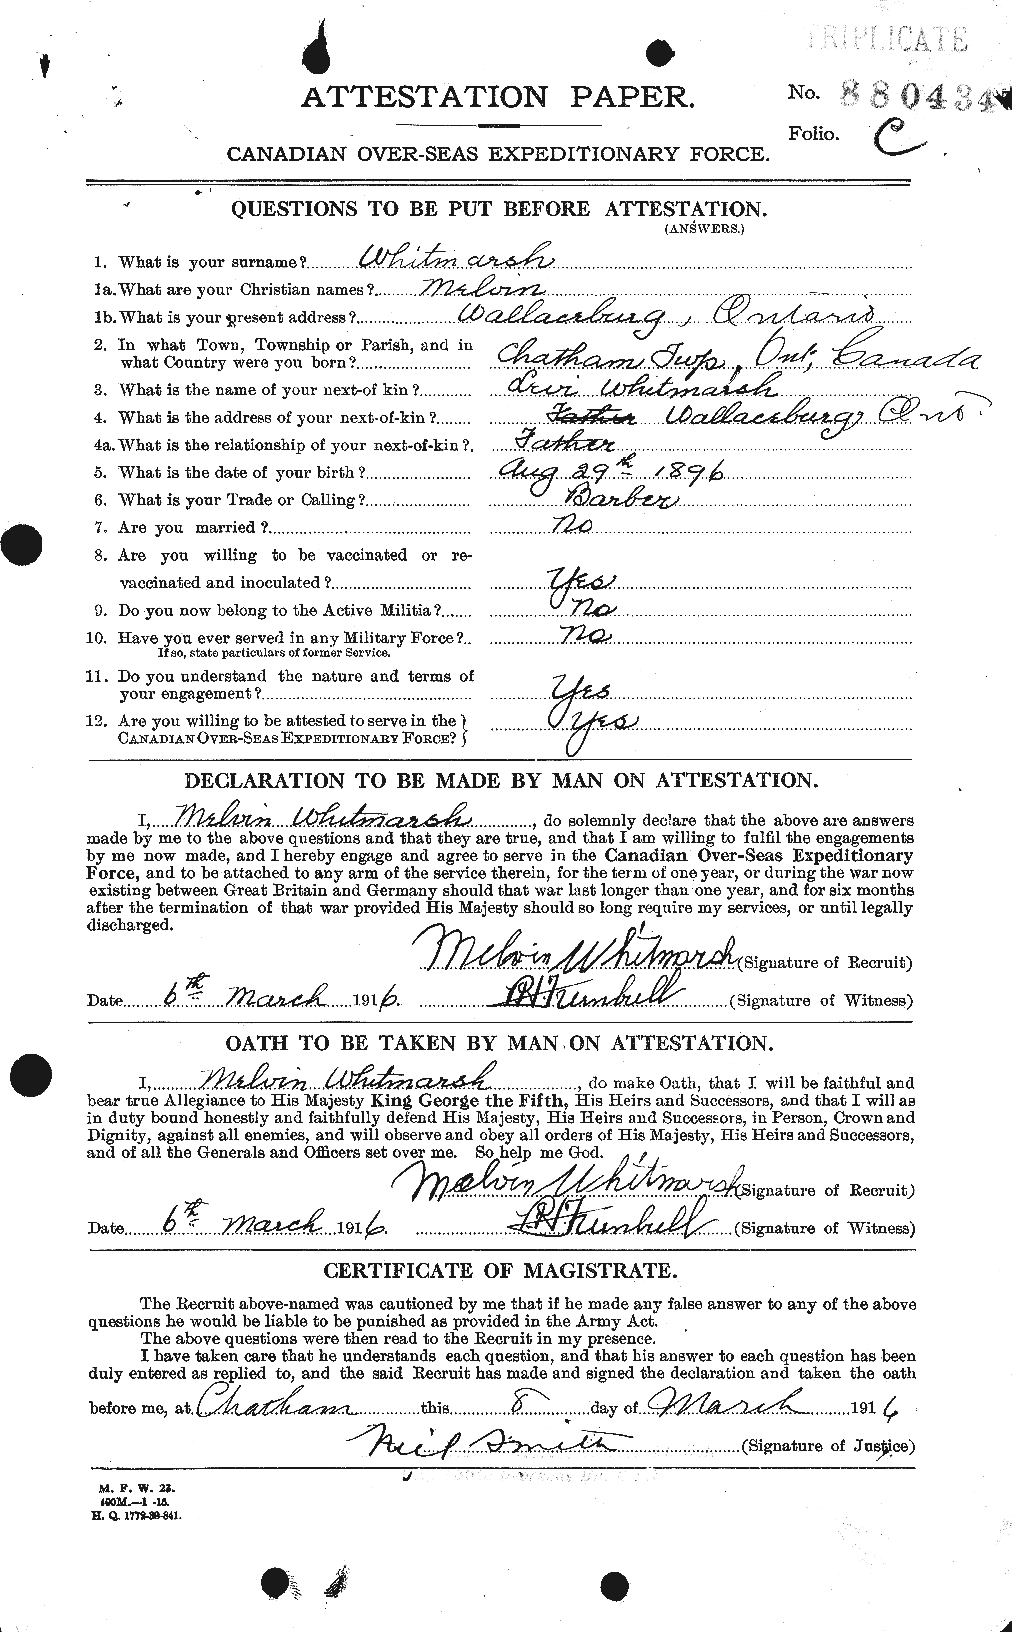 TRIPLICATE
ATTESTATION PAPER.
No. 880434
Folio. C
CANADIAN OVER-SEAS EXPEDITIONARY FORCE.
QUESTIONS TO BE PUT BEFORE ATTESTATION.
(ANSWERS.)
1. What is your surname? Whitmarsh
1a. What are your Christian names? Melvin
1b. What is your present address? Wallaceburg, Ontario
2. In what Town, Township or Parish, and in
what Country were you born? Chatham Twp, Ont, Canada
3. What is the name of your next-of kin? Levi Whitmarsh
4. What is the address of your next-of-kin? Father Wallaceburg Ont
4a. What is the relationship of your next-of-kin? Father
5. What is the date of your birth? Aug 29th 1896
6. What is your Trade or Calling? Barber
7. Are you married? No
8. Are you willing to be vaccinated or re-
vaccinated and inoculated? Yes
9. Do you now belong to the Active Militia? No
10. Have you ever served in any Military Force? No
If so, state particulars of former Service.
11. Do you understand the nature and terms of
your engagement? Yes
12. Are you willing to be attested to serve in the
CANADIAN OVER-SEAS EXPEDITIONARY FORCE? Yes
DECLARATION TO BE MADE BY MAN ON ATTESTATION.
I, Melvin Whitmarsh, do solemnly declare that the above are answers
made by me to the above questions and that they are true, and that I am willing to fulfil the engagements
by me now made, and I hereby engage and agree to serve in the Canadian Over-Seas Expeditionary
Force, and to be attached to any arm of the service therein, for the term of one year, or during the war now
existing between Great Britain and Germany should that war last longer than one year, and for six months
after the termination of that war provided His Majesty should so long require my services, or until legally
discharged.
Melvin Whitmarsh (Signature of Recruit)
Date 6th March 1916. RH Turnbull (Signature of Witness)
OATH TO BE TAKEN BY MAN ON ATTESTATION.
I, Melvin Whitmarsh, do make Oath, that I will be faithful and
bear true Allegiance to His Majesty King George the Fifth, His Heirs and Successors, and that I will as
in duty bound honestly and faithfully defend His Majesty, His Heirs and Successors, in Person, Crown and
Dignity, against all enemies, and will observe and obey all orders of His Majesty, His Heirs and Successors,
and of all the Generals and Officers set over me. So help me God.
Melvin Whitmarsh (Signature of Recruit)
Date 6th March 1916. RH Turnbull (Signature of Witness)
CERTIFICATE OF MAGISTRATE.
The Recruit above-named was cautioned by me that if he made any false answer to any of the above
questions he would be liable to be punished as provided in the Army Act.
The above questions were then read to the Recruit in my presence.
I have taken care that he understands each question, and that his answer to each question has been
duly entered as replied to, and the said Recruit has made and signed the declaration and taken the oath
before me, at Chatham this 8 day of March 1916
Neil Smith (Signature of Justice)
M. F. W. 23.
H. Q. 1772-39-841.